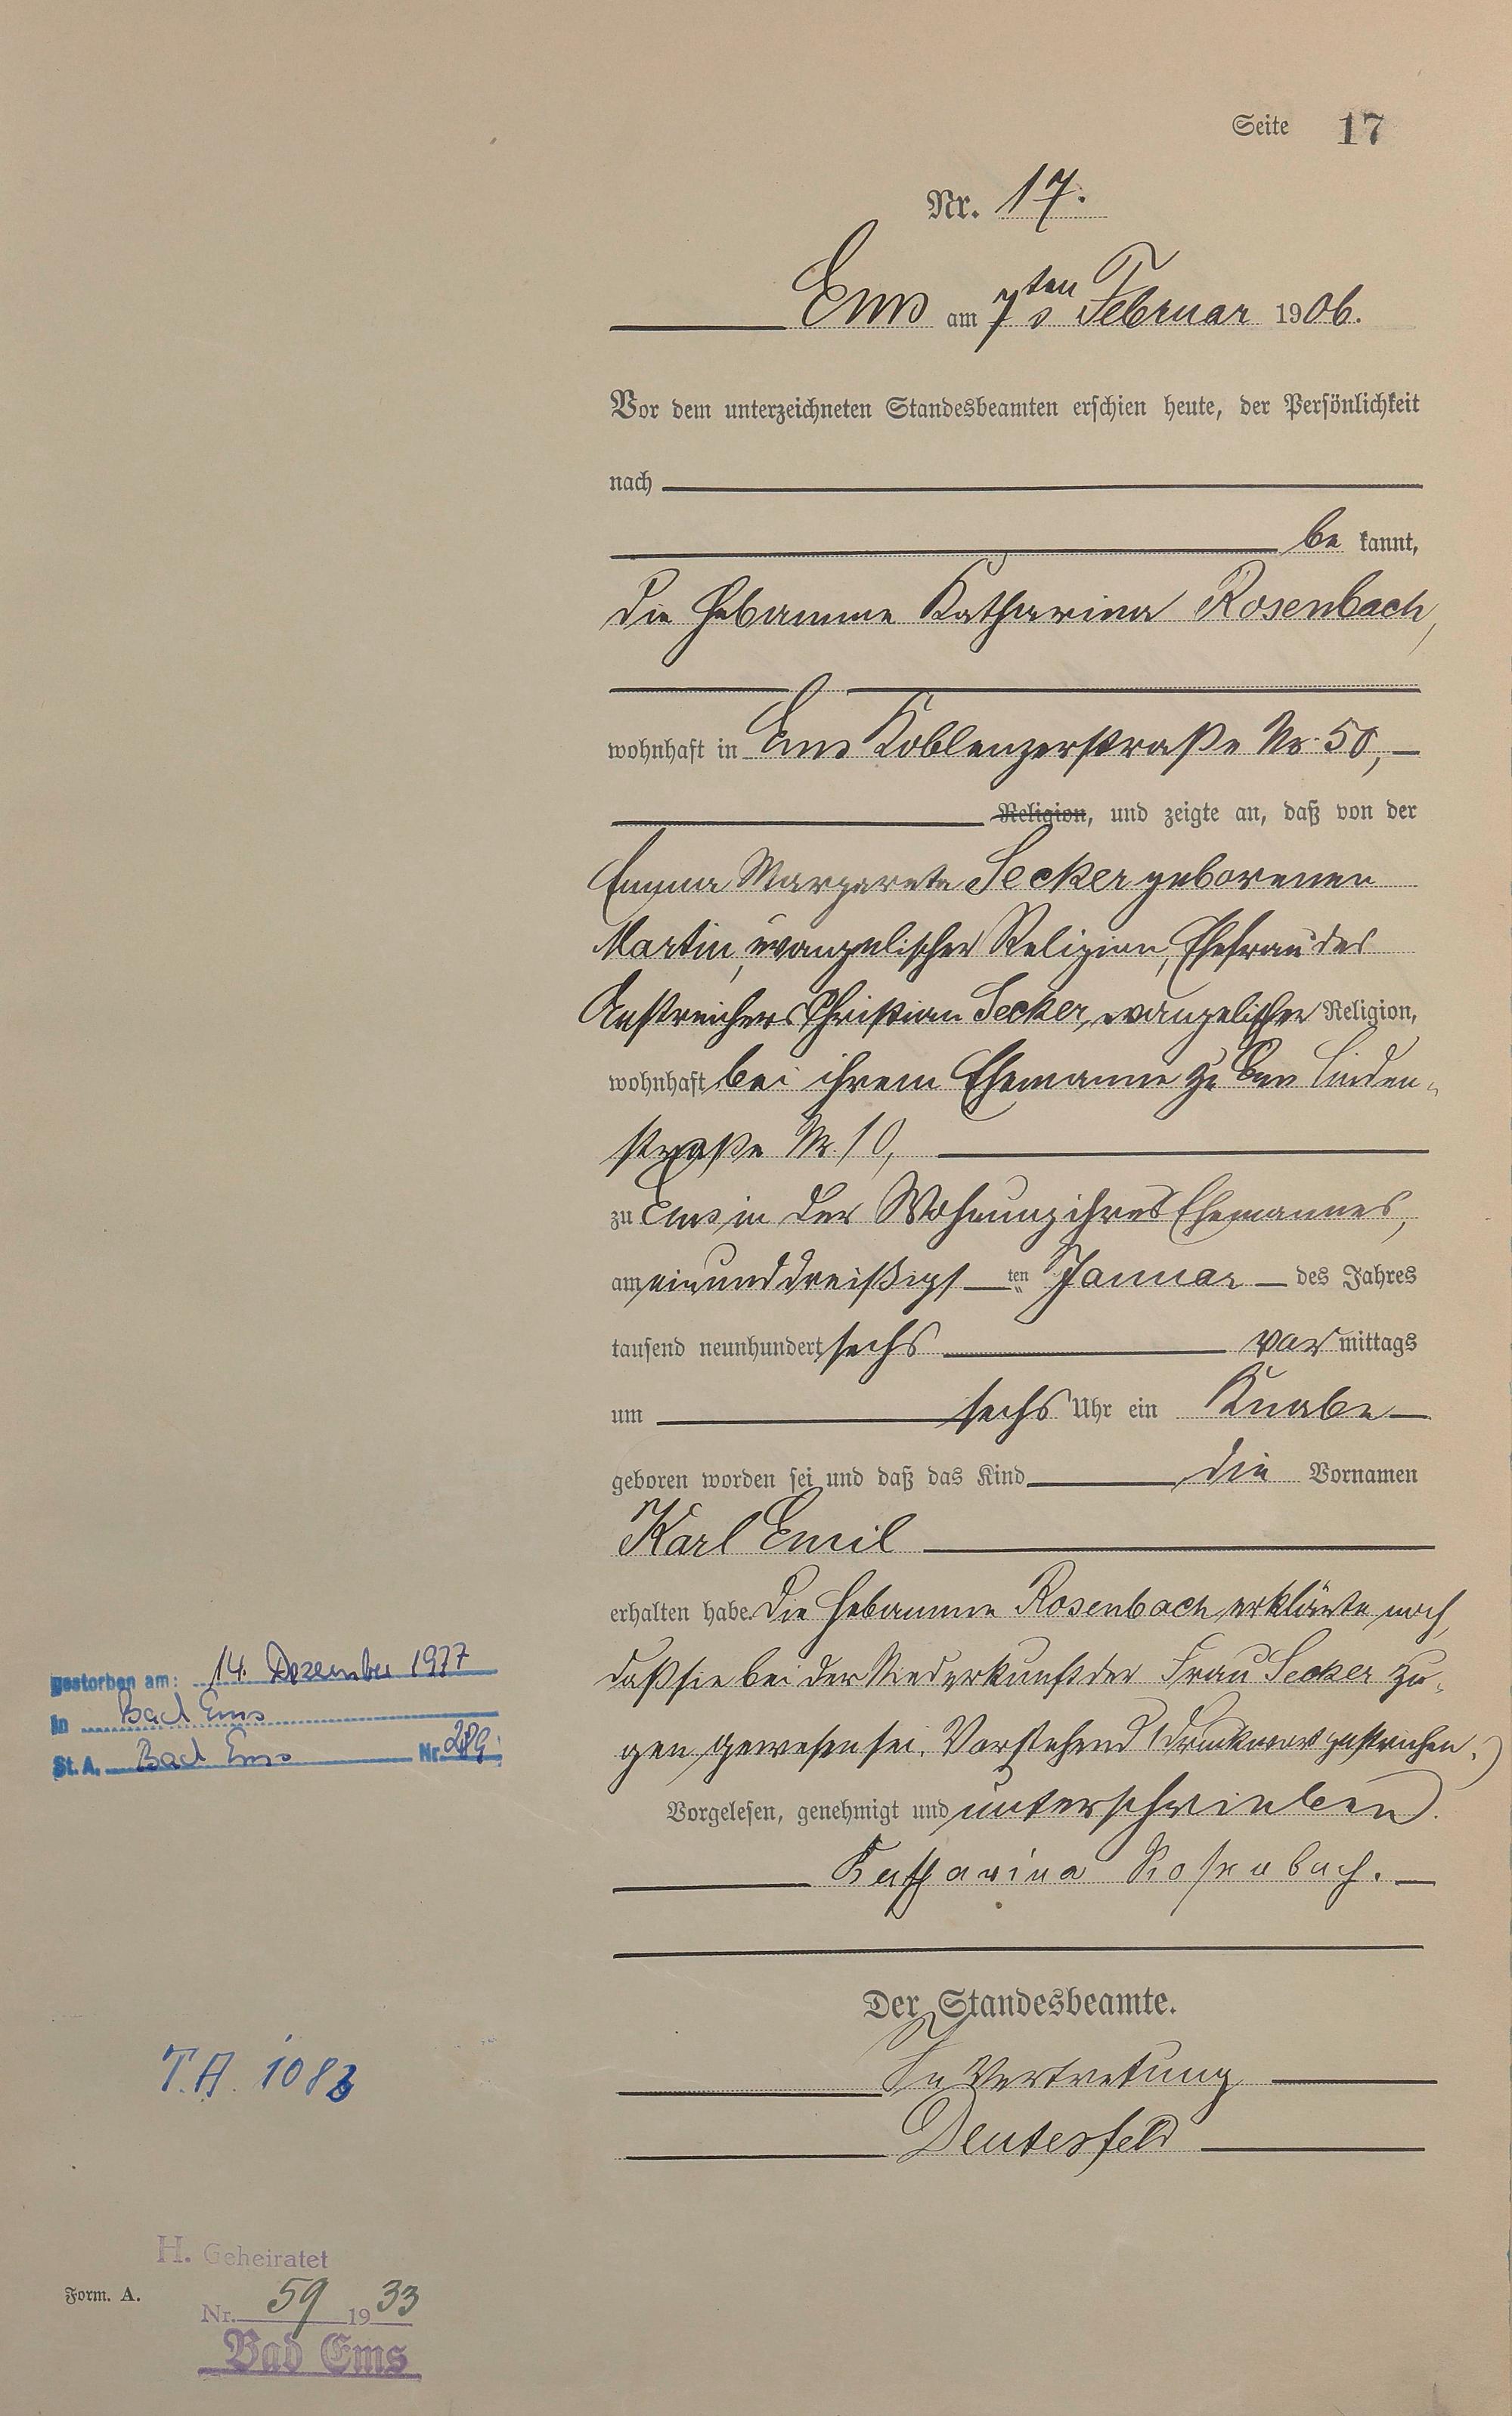 Seite 17
Nr. 17.
Ems am 7ten Februar 1906.
Vor dem unterzeichneten Standesbeamten erschien heute, der Persönlichkeit
nach
be kannt,
die Hebamme Katharina Rosenbach,
wohnhaft in Ems Koblenzerstraße Nr. 50,
Religion, und zeigte an, daß von der
Emma Margareta Secker geborenen
Martin, evangelischer Religion, Ehefrau des
Anstreichers Christian Secker, evangelischer Religion,
wohnhaft bei ihrem Ehemanne zu Ems Linden-
straße Nr. 10,
zu Ems in der Wohnung ihres Ehemannes,
am einunddreißigst ten Januar des Jahres
tausend neunhundert sechs vor mittags
um sechs Uhr ein Knabe
geboren worden sei und daß das Kind die Vornamen
Karl Emil
erhalten habe. Die Hebamme Rosenbach erklärte noch,
daß sie bei der Niederkunft der Frau Secker zu-
gen gewesen sei. Vorstehend 1 Druckwort gestrichen.
Vorgelesen, genehmigt und unterschrieben.
Katharina Rosenbach.
Der Standesbeamte.
In Vertretung
Deutesfeld
gestorben am: 14. Dezember 1977
in Bad Ems
St. A. Bad Ems Nr. 289
T.A. 1083
H. Geheiratet
Form. A.
Nr. 59 1933
Bad Ems